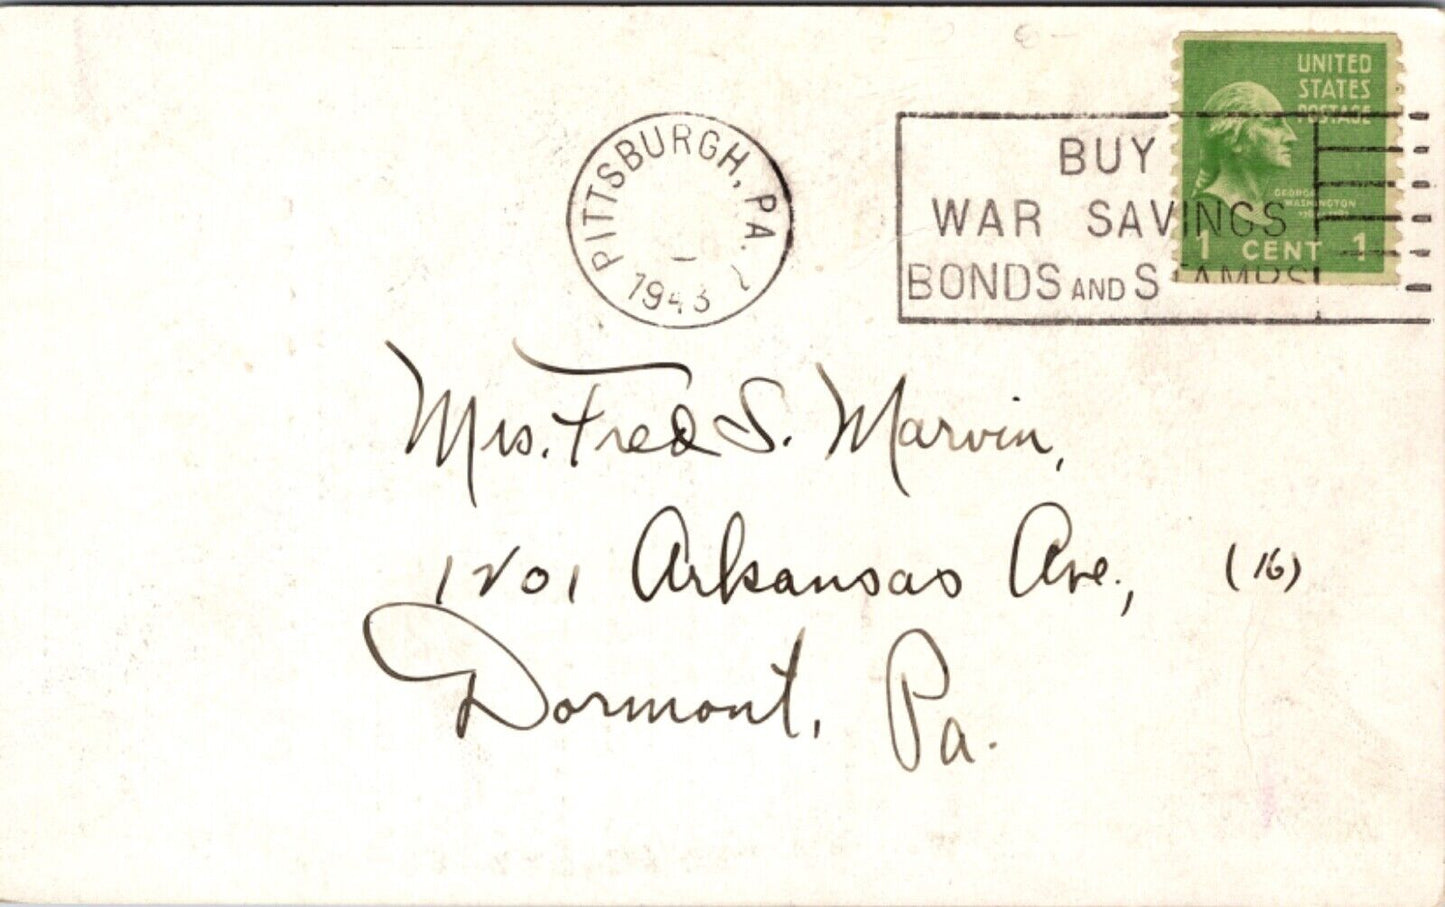 PITTSBURGH, PA.
1943
BUY
WAR SAVINGS
BONDS AND STAMPS
UNITED
STATES
POSTAGE
GEORGE
WASHINGTON
1 CENT 1
Mrs. Fred S. Marvin,
1201 Arkansas Ave., (16)
Dormont, Pa.